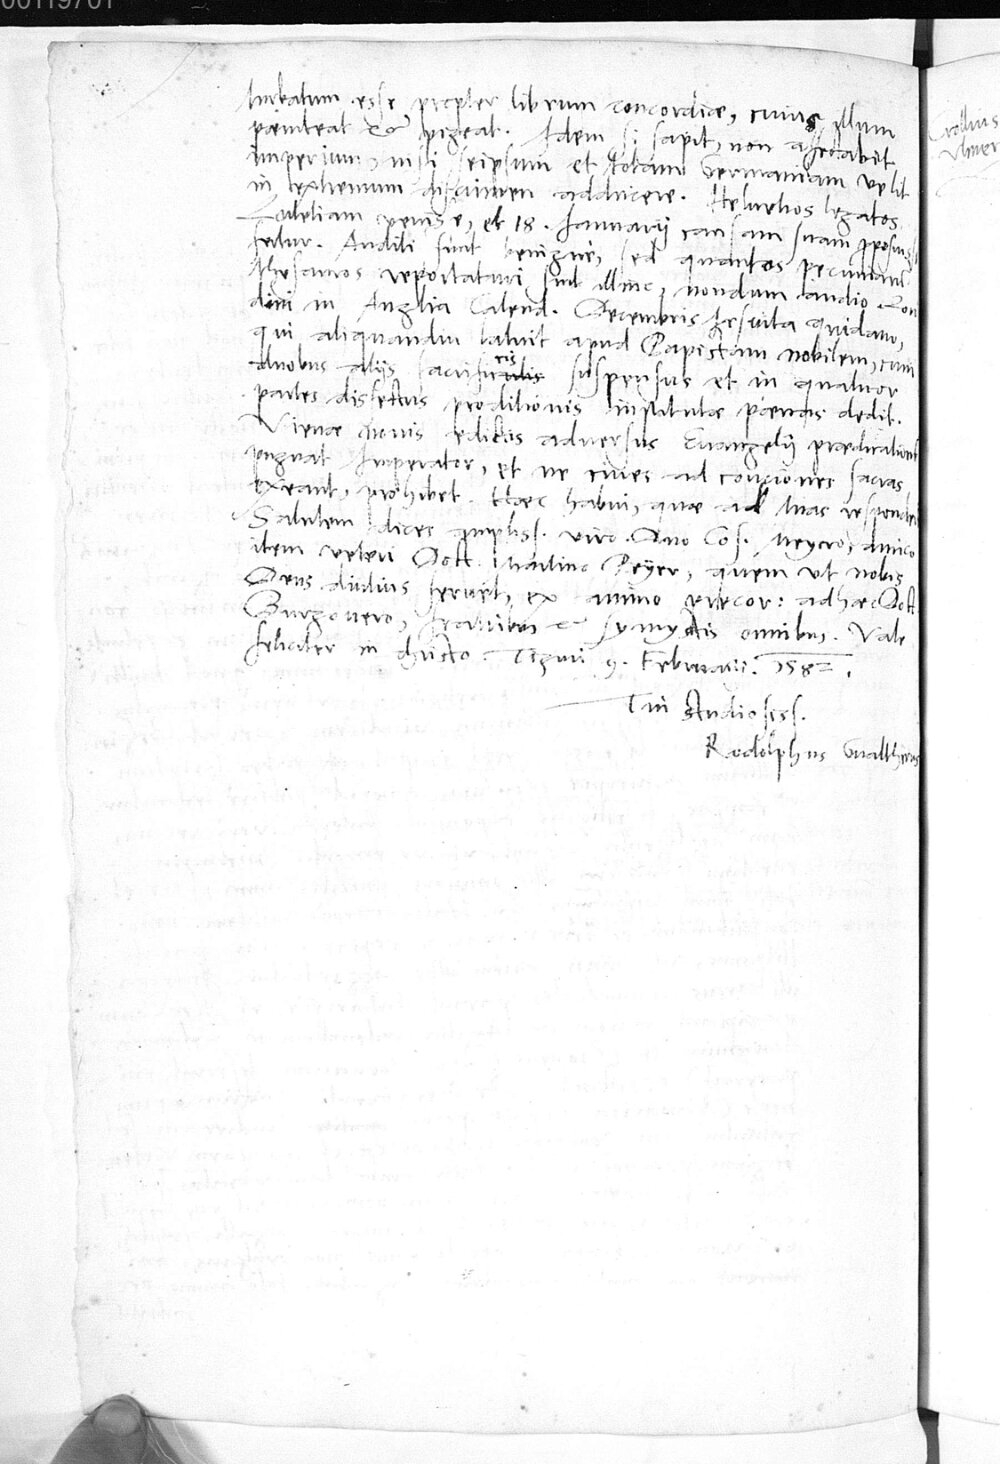 00119701
turbatum esse propter librum concordiæ, cuius illum
pœniteat et pigeat. Idem si sapit, non affectabit
imperium, nisi seipsum et totam Germaniam velit
in extremum discrimen adducere. Helvetios legatos
Lutetiam venisse, et 18. Januarij causam suam
Auditi sunt benignè, sed quantos pecuniarum
thesauros reportaturi sint illinc, nondum audio. Lon
dini in Anglia Calend. Decembris Jesuita quidam,
qui aliquandiu latuit apud Papistam nobilem, cum
duobus alijs suspensus et in quatuor
partes dissectus proditionis institutæ pœnas dedit.
Viennæ novis edictis adversus Euangelij prædicationem
pugnat Imperator, et ne cives ad conciones sacras
exeant, prohibet. Hæc habui, quæ ad tuas responderem
Salutem dices ampliss. viro Dno Cos. Meyero, amico
item veteri Doct. Martino Peyer, quem ut nobis
Deus diutius servet, ex animo precor: ad hæc Doct.
Burgovero, fratribus et symystis omnibus. Vale
feliciter in Christo. Tiguri 9. Februarii. 1582.
Tui studiosiss.
Rodolphus Gualtherus
Ulmer